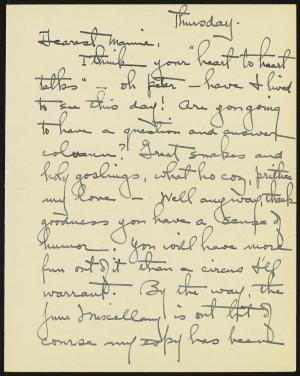 Thursday.
Dearest Mamie,
I think your "heart to heart
talks" - oh peter - have I lived
to see this day! Are you going
to have a question and answer
column? Great snakes and
holy goslings, what ho coz, prithee
my love - Well anyway, thank
goodness you have a sense of
humor. You will have more
fun out of it than a circus I'll
warrant. By the way, the
June Miscellany is out but of
course my copy has been